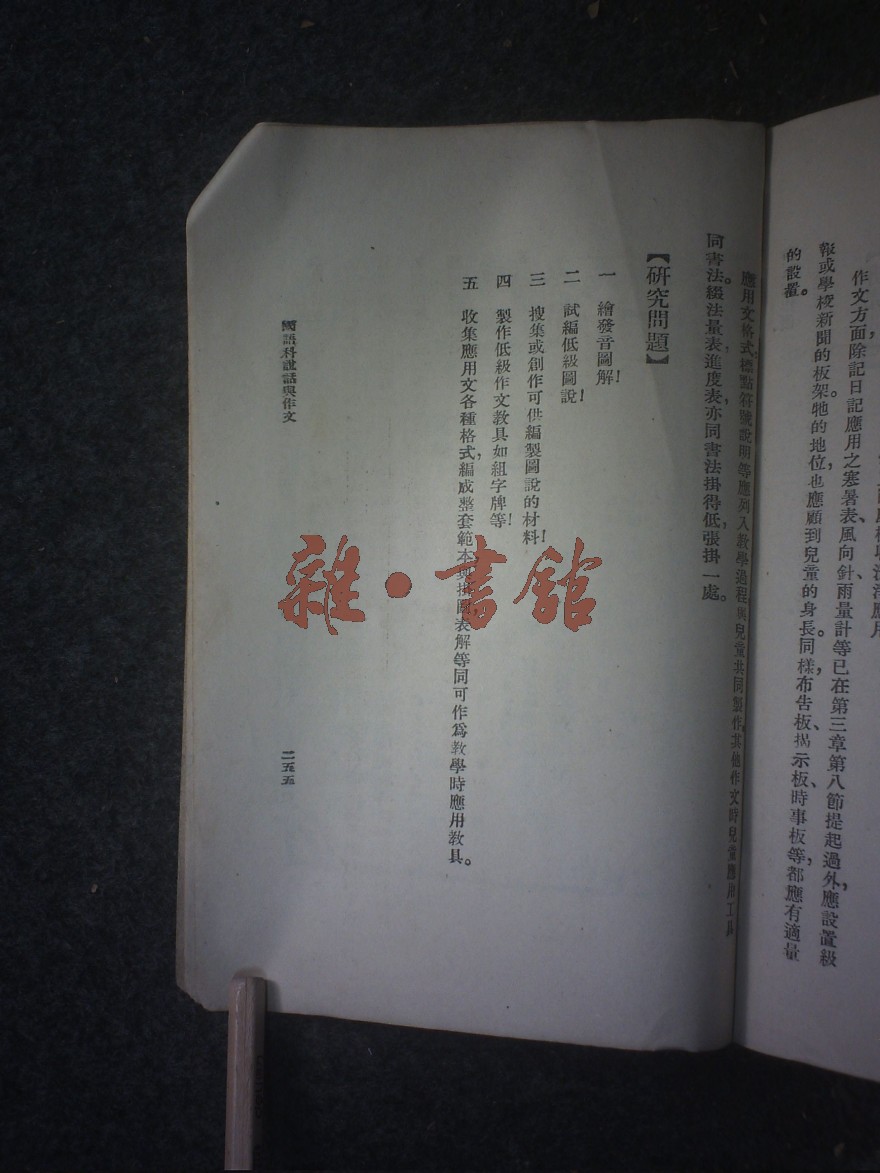 作文方面除記日記應用之寒暑表、風向針、雨量計等已在第三章第八節提起過外，應設置級
報或學校新聞的板架。牠的地位，也應顧到兒童的身長。同樣，布告板、揭示板、時事板等，都應有適量
的設置。
應用文格式，標點符號說明等應列入教學過程與兒童共同製作，其他作文時兒童應用工具
同書法。綴法量表進度表，亦同書法掛得低，張掛一處。
【研究問題】
一 繪發音圖解！
二 試編低級圖說！
三 搜集或創作可供編製圖說的材料！
四 製作低級作文教具如組字牌等！
五 收集應用文各種格式，編成整套範本表解等同可作爲教學時應用教具。
國語科說話與作文
二五五
雜·書館